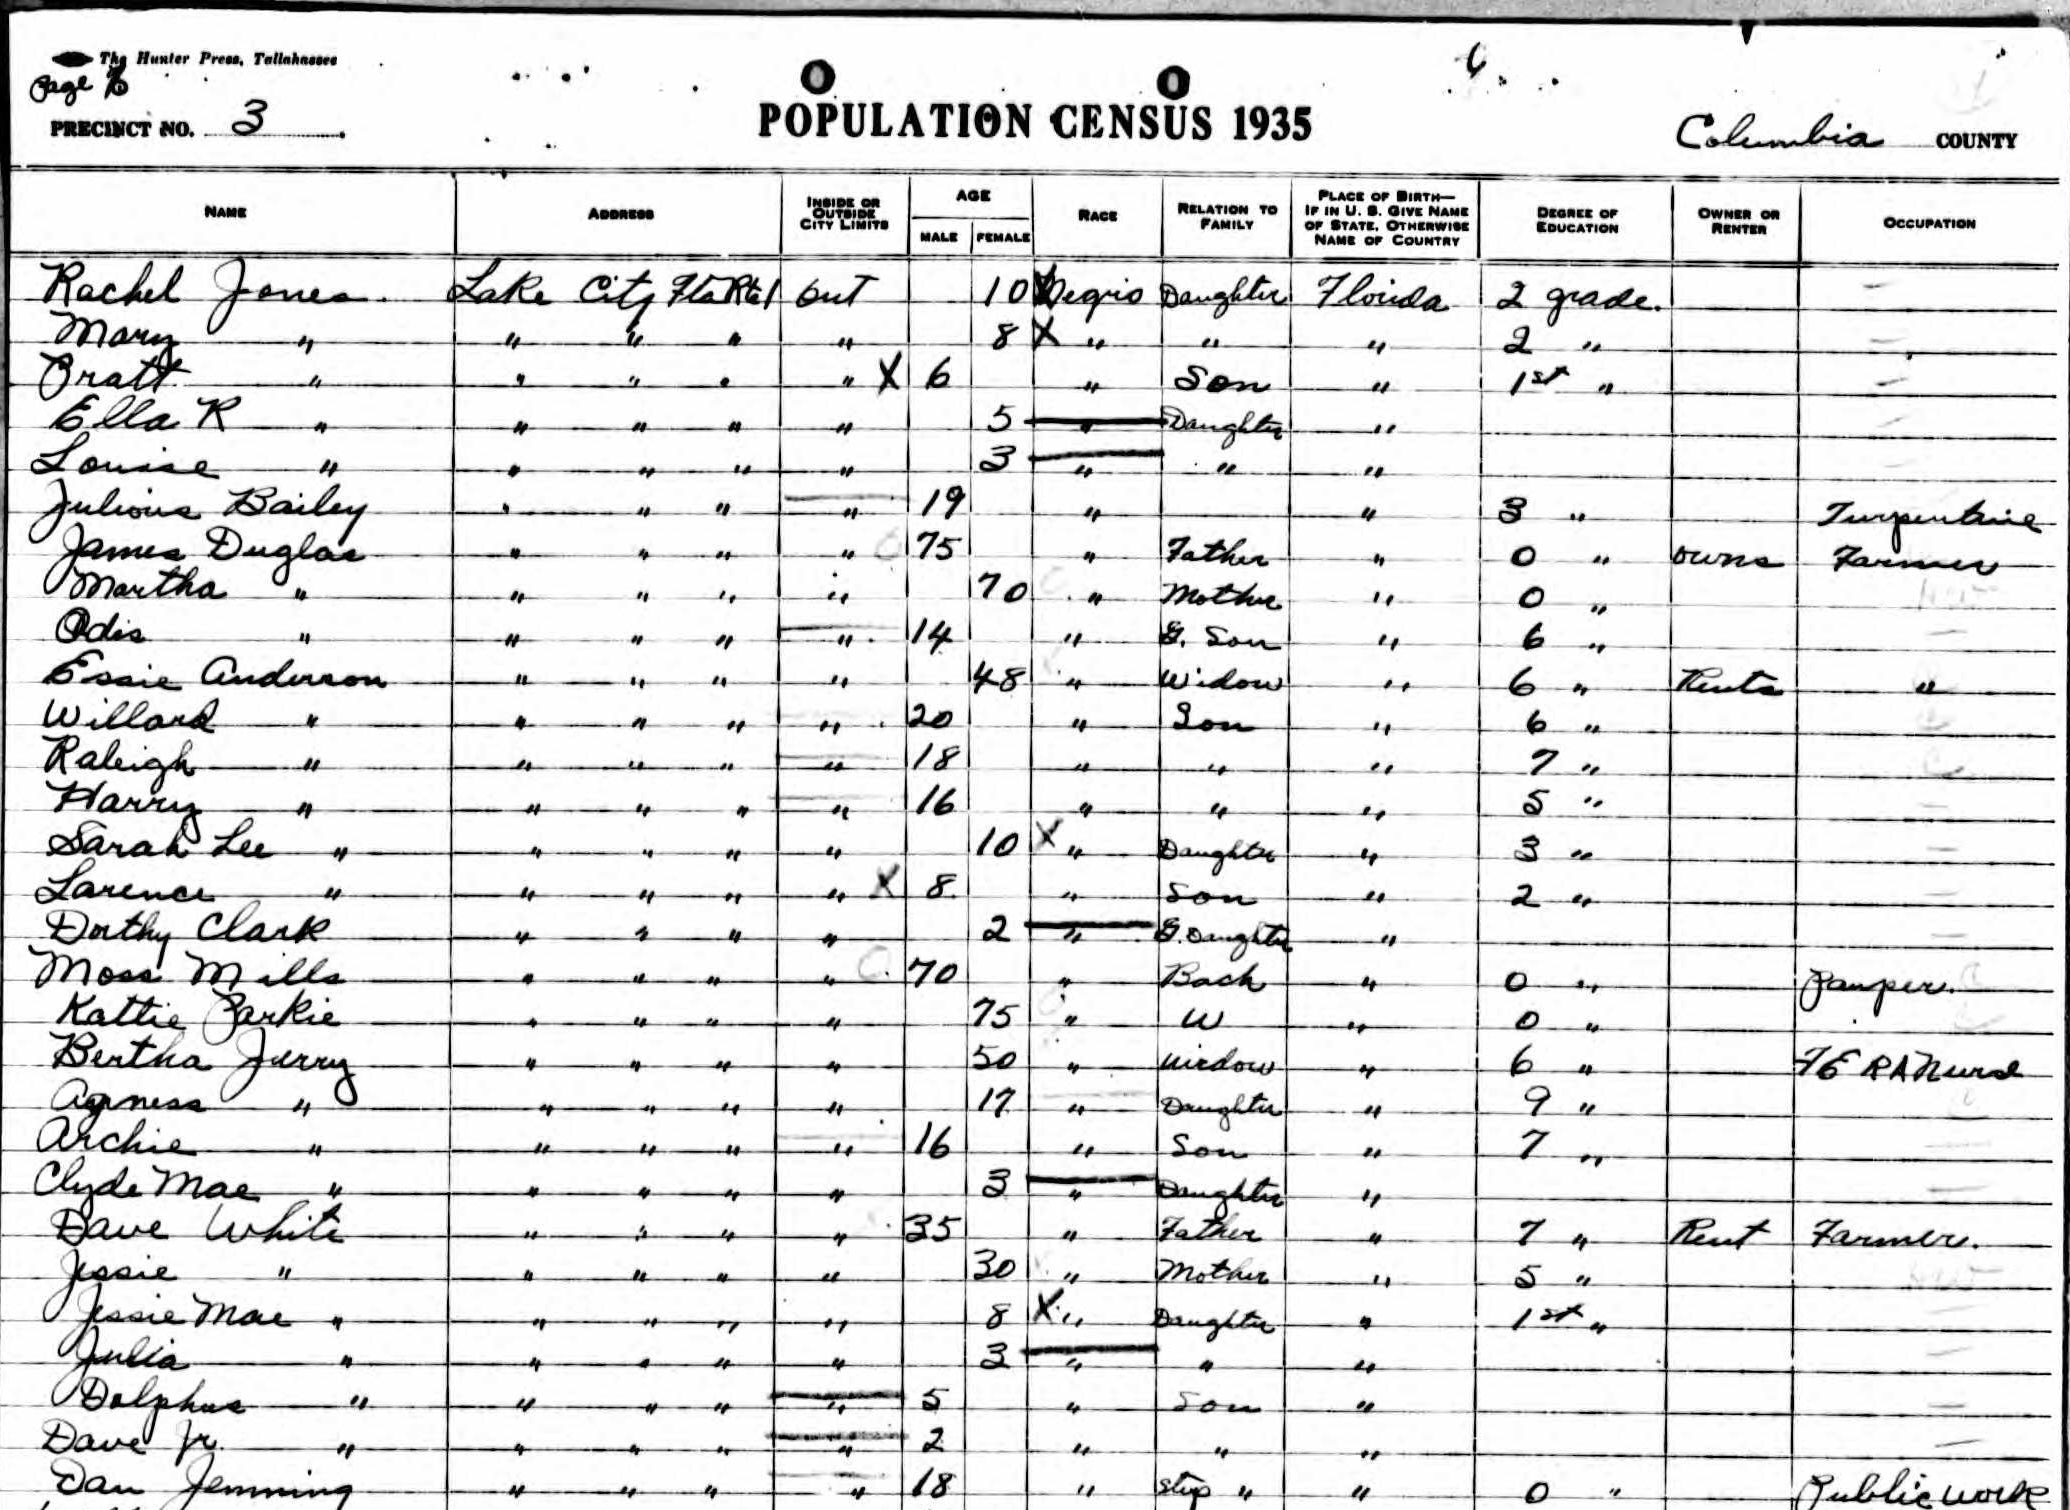 The Hunter Press, Tallahassee
Page
PRECINCT NO. 3
POPULATION CENSUS 1935
Columbia COUNTY
NAME ADDRESS INSIDE OR OUTSIDE CITY LIMITS AGE MALE FEMALE RACE RELATION TO FAMILY PLACE OF BIRTH— IF IN U. S. GIVE NAME OF STATE, OTHERWISE NAME OF COUNTRY DEGREE OF EDUCATION OWNER OR RENTER OCCUPATION
Rachel Jones Lake City Fla Rte 1 out 10 Negro Daughter Florida 2 grade.
Mary " " " " " 8 X " " " 2 "
Pratt " " " " " X 6 " Son " 1st "
Ella R " " " " " 5 " Daughter "
Louise " " " " " 3 " " "
Julious Bailey " " " " 19 " " 3 " Turpentine
James Duglas " " " " 75 " Father " 0 " owns Farmer
Martha " " " " " 70 " Mother " 0 "
Odis " " " " " 14 " G. Son " 6 "
Essie Anderson " " " " 48 " Widow " 6 " Rents "
Willard " " " " " 20 " Son " 6 "
Raleigh " " " " " 18 " " " 7 "
Harry " " " " " 16 " " " 5 "
Sarah Lee " " " " " 10 X " Daughter " 3 "
Larence " " " " " X 8 " Son " 2 "
Dorthy Clark " " " " 2 " G. Daughter "
Moss Mills " " " " 70 " Bach " 0 " Pauper.
Kattie Parkie " " " " 75 " W " 0 "
Bertha Jerry " " " " 50 " Widow " 6 " FERA Nurse
Agness " " " " " 17 " Daughter " 9 "
Archie " " " " " 16 " Son " 7 "
Clyde Mae " " " " " 3 " Daughter "
Dave White " " " " 35 " Father " 7 " Rent Farmer.
Jessie " " " " " 30 " Mother " 5 "
Jessie Mae " " " " " 8 X " Daughter " 1st "
Julia " " " " " 3 " " "
Dolphus " " " " " 5 " Son "
Dave Jr. " " " " " 2 " " "
Dan Jemming " " " " 18 " Step " " 0 " Public work